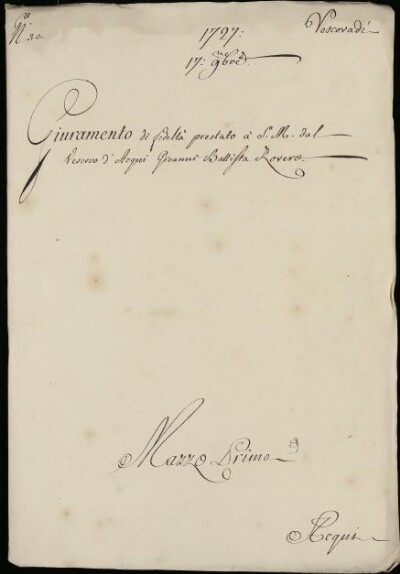 N.º 30
1727:
Vescovadi
17: 9bre
Giuramento di fedeltà prestato à S. M. dal
Vescovo d'Acqui Giovanni Battista Rovero
Mazzo Primo
Acqui